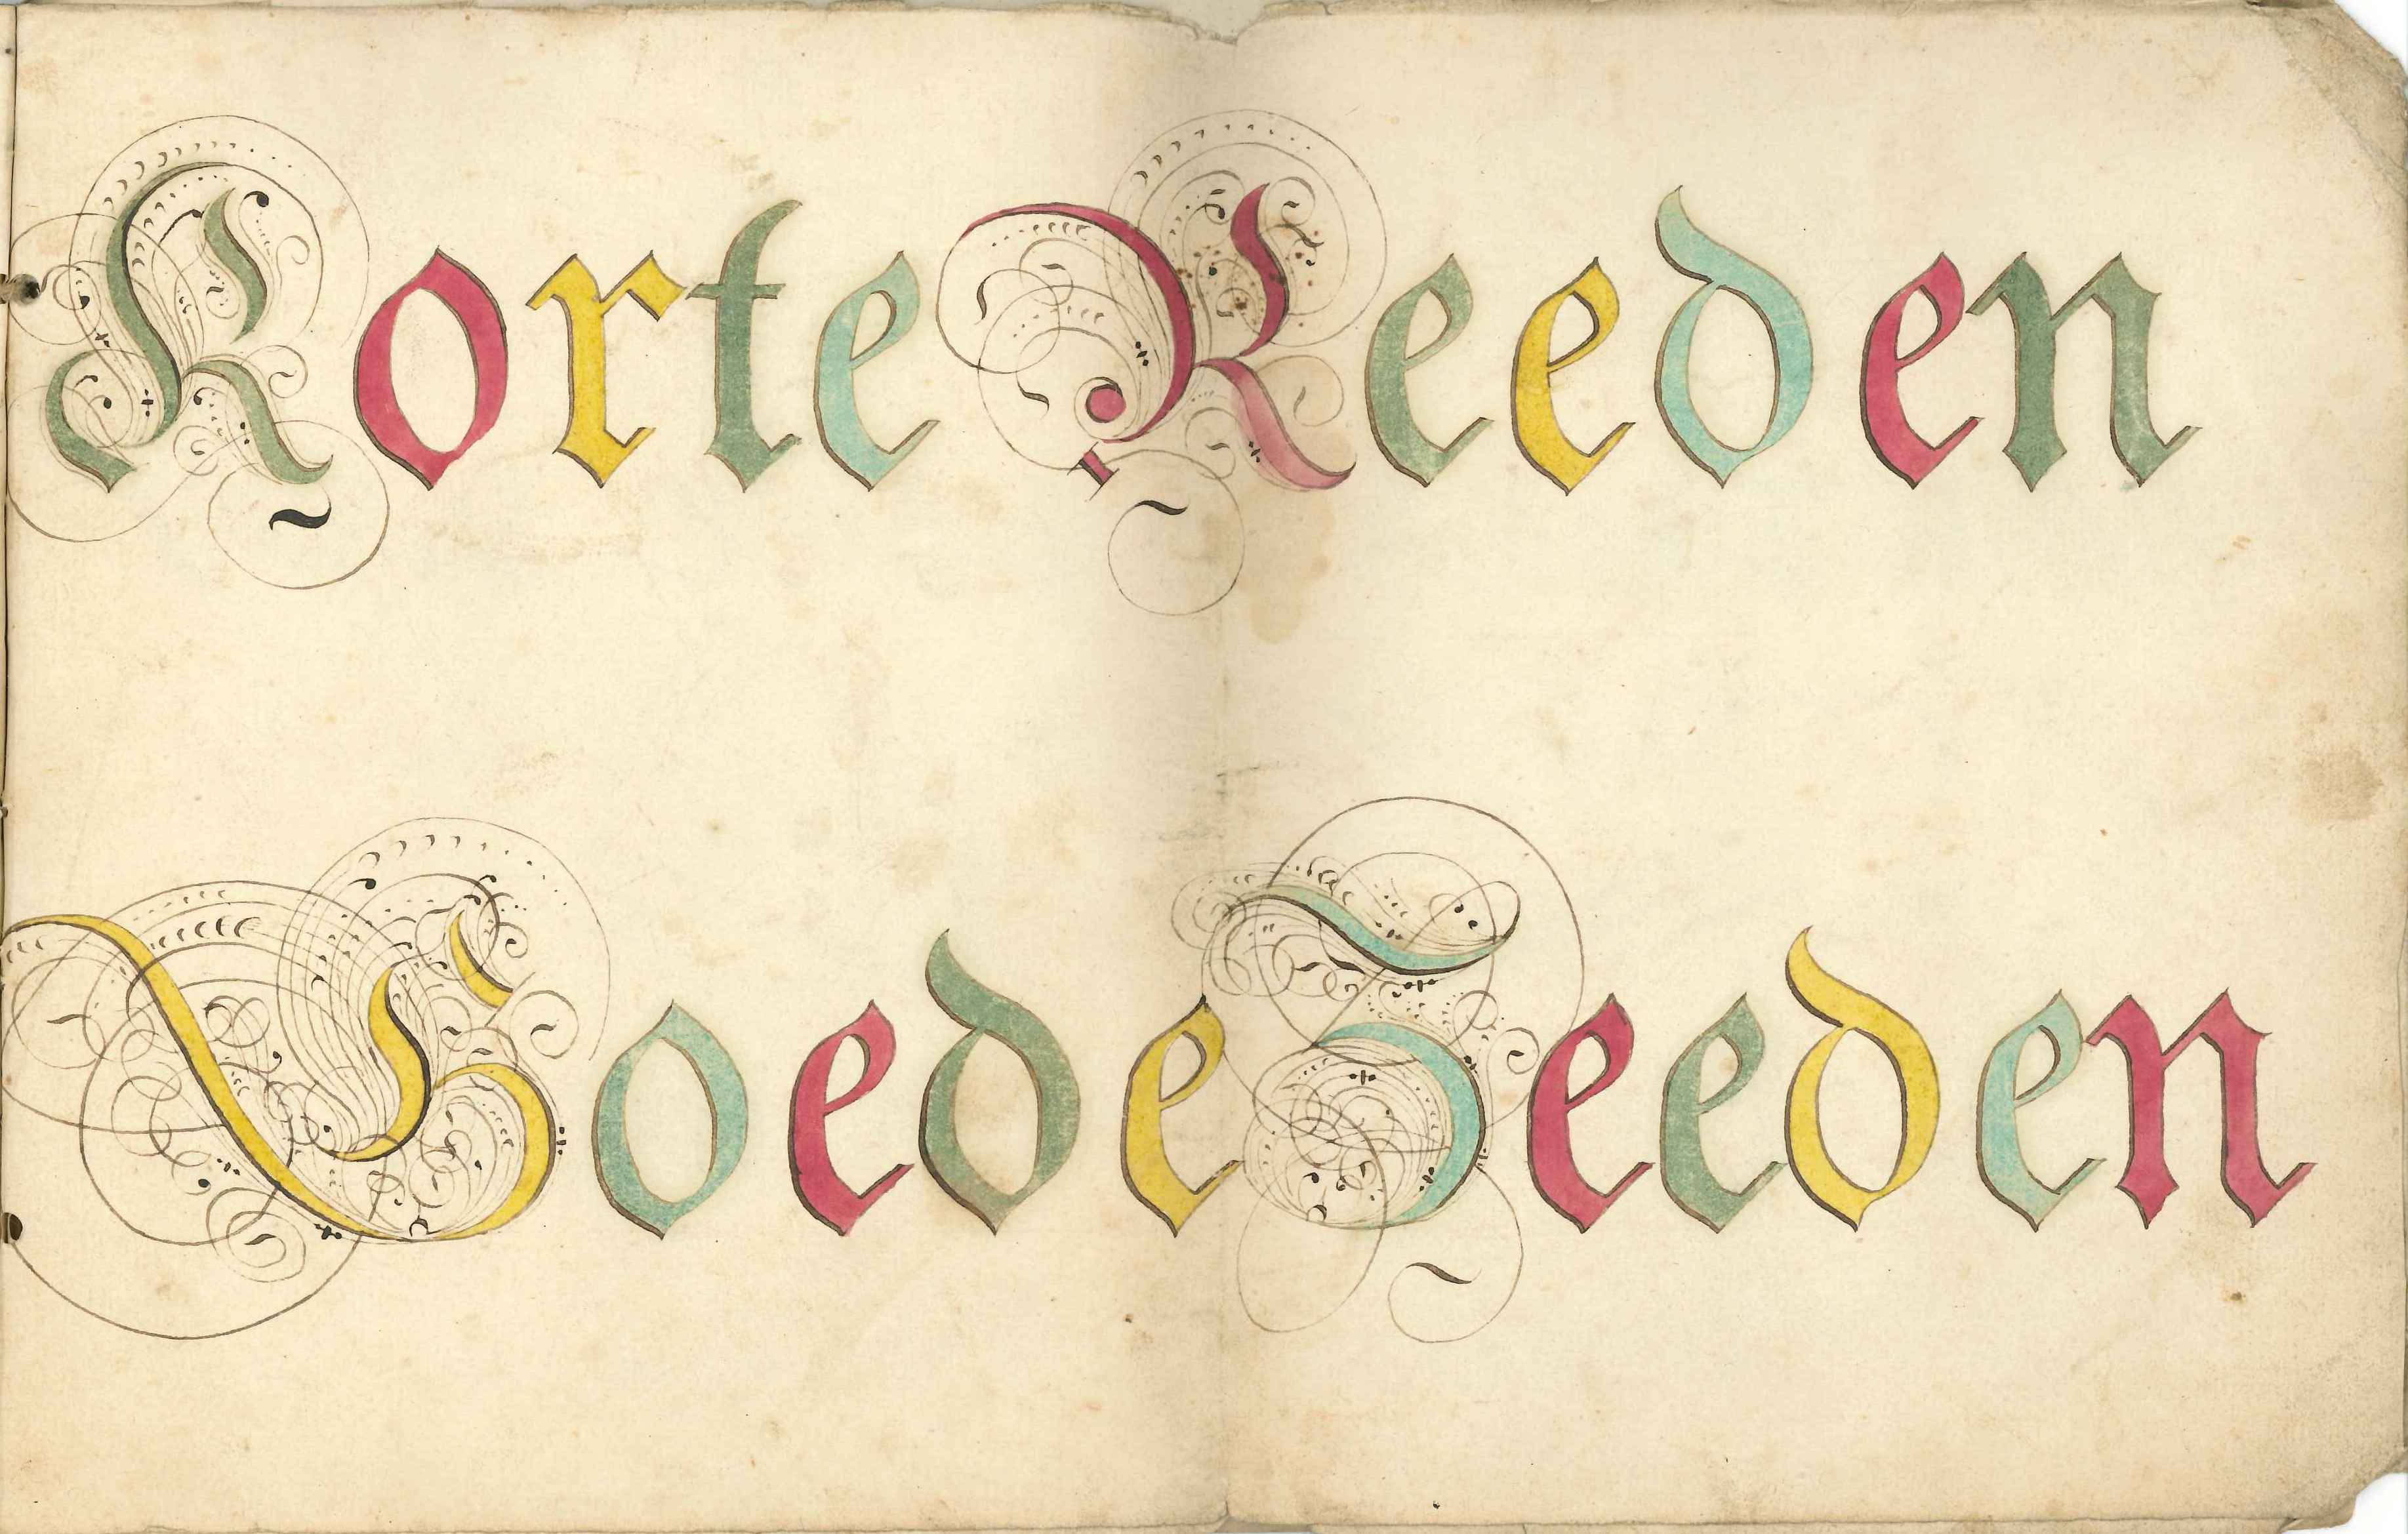 Korte Reeden
Goede Zeeden